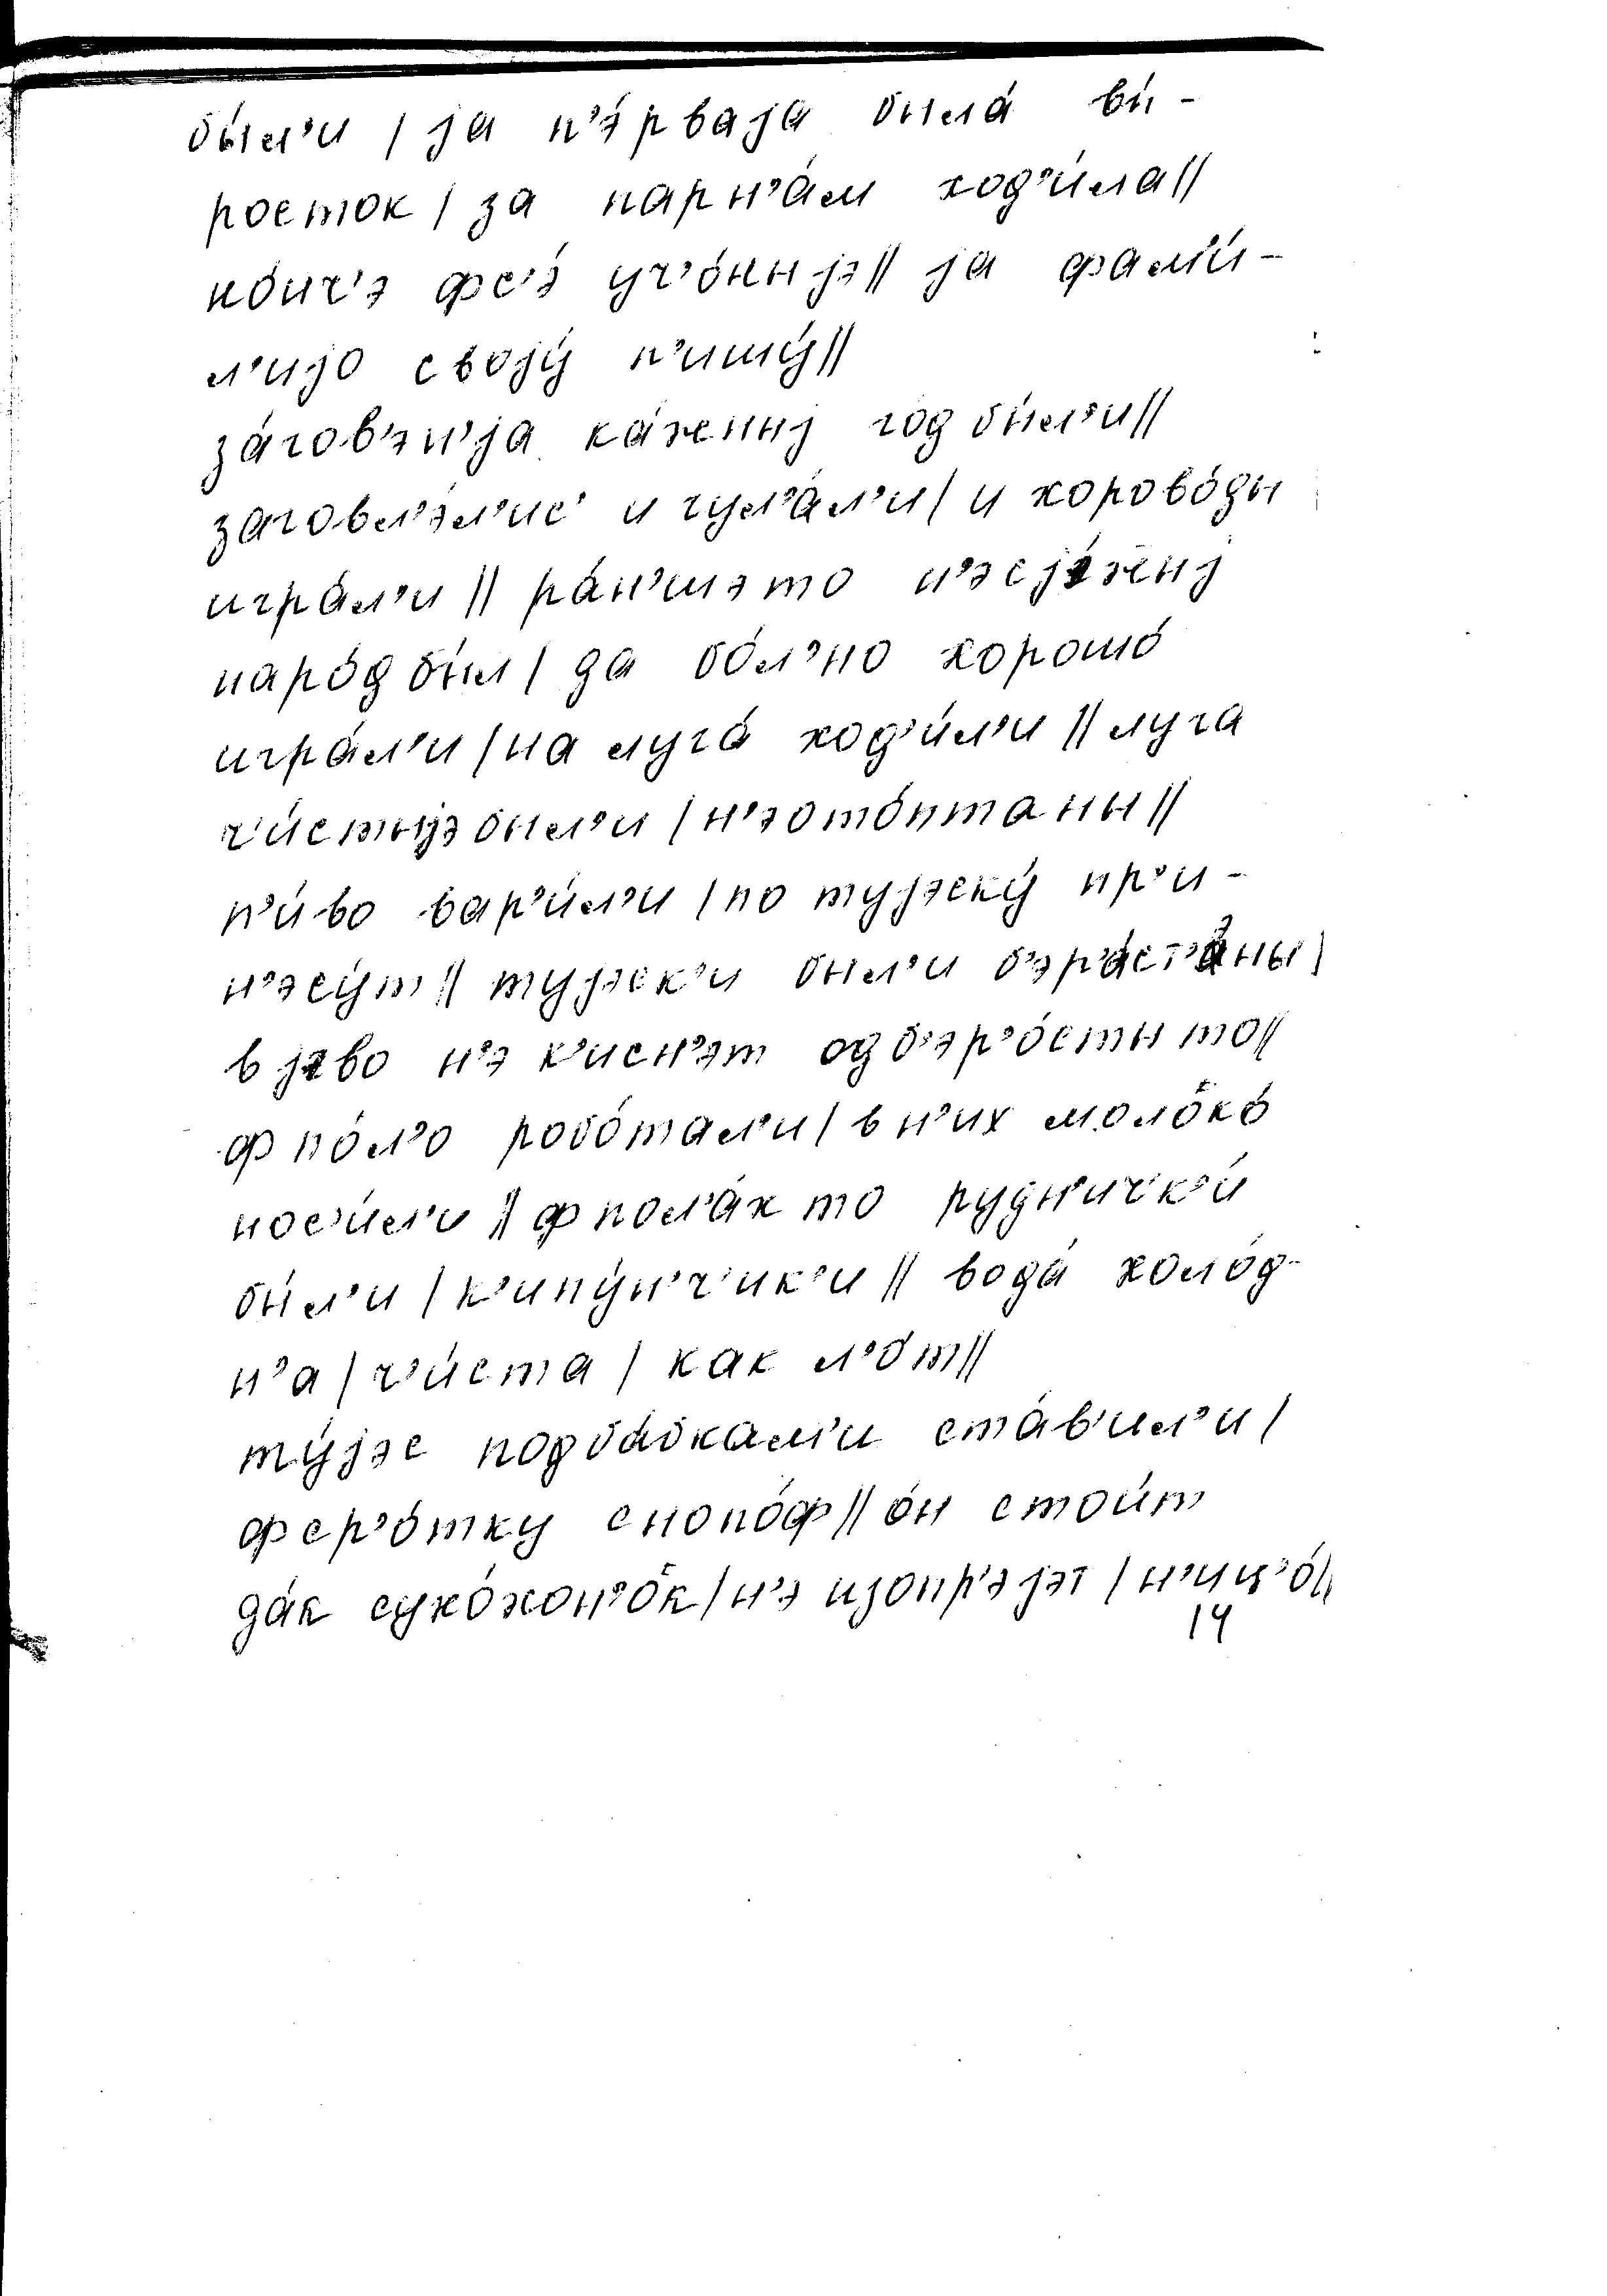 бы́л'и / jа п'э́рваjа была́ вы́-
росток / за парн'а́м ход'и́ла //
но́нч'э фс'э́ уч'о́ныjэ // jа фам'и́-
л'иjо своjу́ п'ишу́ //
за́гов'эн'jа ка́жныj год бы́л'и //
заговл'э́л'ис' и гул'а́л'и / и хорово́ды
игра́л'и // ра́н'шэ то н'эсjэ́жныj
наро́д бы́л / да бо́л'но хорошо́
игра́л'и / на луга́ ход'и́л'и // луга
ч'и́стыjэ был'и / н'эото́птаны //
п'и́во вар'и́л'и / по туjэску́ пр'и-
н'эсу́т // туjэск'и был'и б'эр'а́ст'аны /
в jэво н'э к'исн'эт од б'эр'о́сты то //
ф по́л'о робо́тал'и / в н'их молоко́
нос'и́л'и // ф пол'а́х то рудн'ич'к'и́
бы́л'и / к'ипу́н'ч'ик'и // вода́ холо́д-
н'а / ч'и́ста / как л'о́т //
ту́jэс под ба́бкам'и ста́в'ил'и /
ф сер'о́тку снопо́ф // о́н стои́т
да́к сухо́хон'о́к / н'э изопр'эjэт / н'иц'о́ //
14